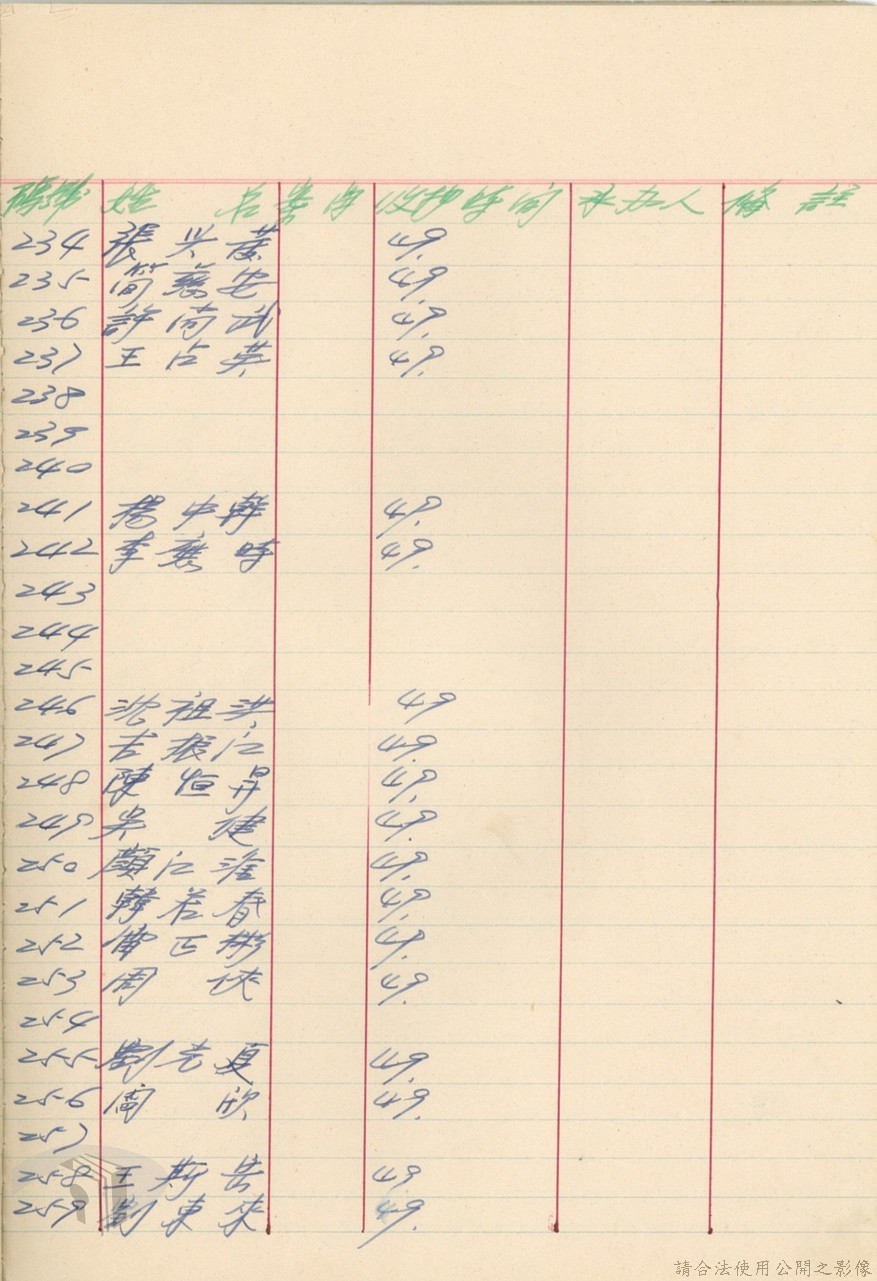 碼號 姓 名 案由 收押时间 承办人 備註
234 張兴黄 49.
235 簡慈忠 49.
236 許尚武 49.
237 王占英 49.
238
239
240
241 楊中幹 49.
242 李應時 49.
243
244
245
246 沈祖洪 49
247 吉振江 49.
248 陳恒昇 49.
249 吳 健 49.
250 顏江淮 49.
251 韓若春 49.
252 正彬 49.
253 周 俠 49.
254
255 劉光夏 49.
256 周 欣 49.
257
258 王斯 49.
259 劉東來 49.
請合法使用公開之影像